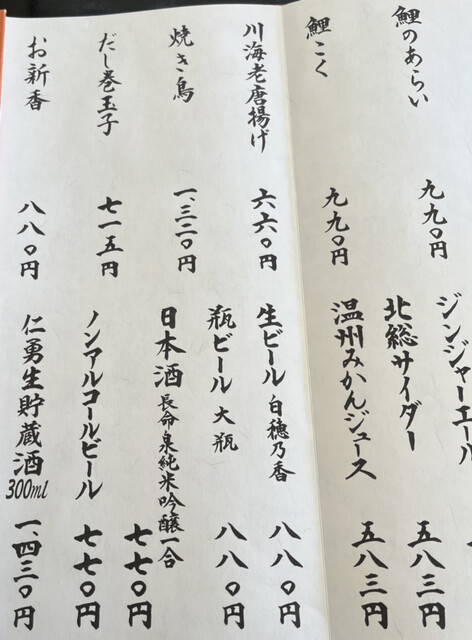 鯉のあらい 九九〇円
鯉こく 九九〇円
川海老唐揚げ 六六〇円
焼き鳥 一、三二〇円
だし巻玉子 七一五円
お新香 八八〇円
ジンジャーエール
北総サイダー 五八三円
温州みかんジュース 五八三円
生ビール 白穂乃香 八八〇円
瓶ビール 大瓶 八八〇円
日本酒 長命泉純米吟醸一合 七七〇円
ノンアルコールビール 七七〇円
仁勇生貯蔵酒 300ml 一、四三〇円